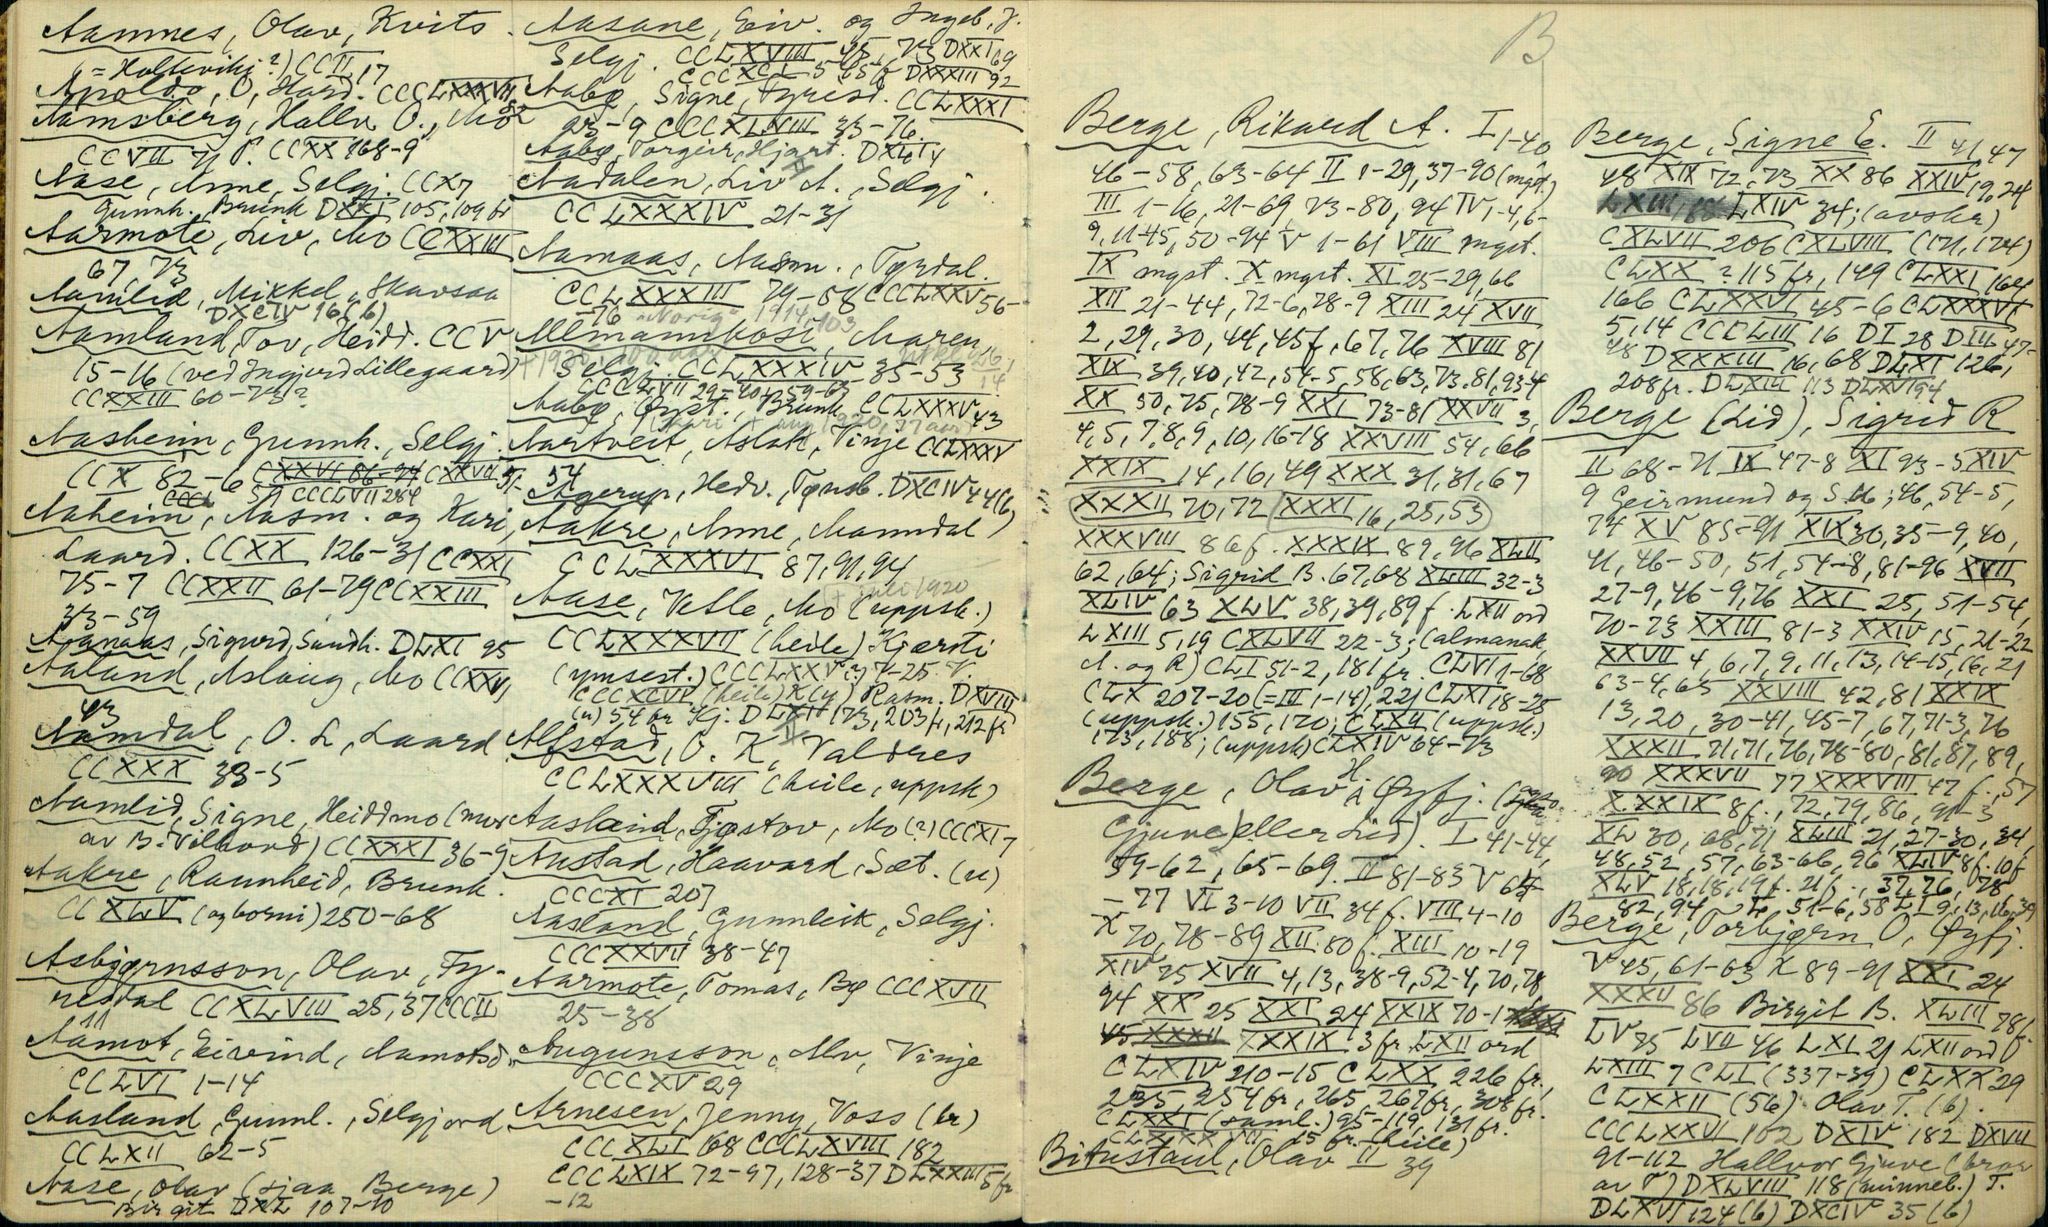 Aamnes, Olav, Kvits.
(= Holtevikj?) CCII 17
Apoldo, O, Hard. CCCLXXXVII
Aamsberg, Hallv. O., Mo
CCVII 71 f. CCXX 168-9
Aase, Anne, Selgj. CCX7
Gunnh. Brunk DXXI 105, 109 br
Aarmote, Liv, Mo CCXXIII
67, 73
Aamlid, Mikkel, Skavsaa
DXCIV 16 (6)
Aamland, Tov, Heidd. CCV
15-16 (ved Ingjerd Lillegaard)
CCXXIII 60-73?
Aasheim, Gunnh., Selgj.
CCX 82-6
CCCLVII 284
Aaheim, Aasm. og Kari,
Laard. CCXX 126-31 CCXXI
75-7 CCXXII 61-79 CCXXIII
33-59
Aanaas, Sigurd, Sundh. DLXI 95
Aaland, Aslaug, Mo CCXXV,
43
Aamdal, O. L, Laard
CCXXX 33-5
Aamlid, Signe, Heiddmo (mor
av B. Vilbord) CCXXXI 36-9
Aakre, Raunheid, Brunk.
CCXLV (og borni) 250-68
Asbjørnsson, Olav, Ty-
risdal CCXLVIII 25, 37 CCCII
11
Aamot, Eivind, Aamotsd.
CCLVI 1-14
Aasland, Gunnl., Selgjord
CCLXII 62-5
Aase, Olav (sjaa Berge)
Birgit DXL 107-10
Aasane, Eiv. og Ingeb. J.
Selgj. CCLXVIII 45, 73 DXXI 69
CCCXCI 5-45 f DXXXIII 92
Aabø, Signe, Tyrisd. CCLXXXI
23-9 CCCXLVIII 33-76.
Aabø, Torgeir, Hjart.
Aadalen, Liv A., Selgj.
CCLXXXIV 21-31
Aamaas, Aasm., Tyrdal.
CCLXXXIII 79-88 CCCLXXV 56-
-76 "Norig" 1914, 103
Ullmannkost, Maren,
Selgj. CCLXXXIV 35-53
CCCLVII 29-40, 59-63
Aabø, Øyst., Brunk. CCLXXXV 43
Aartveit, Aslak, Vinje CCLXXXV
54
Agerup, Hedv., Tønsb. DXCIV 44 (6)
Aakre, Anne, Manndal
CCLXXXVI 87, 91, 94
juli 1920
Aase, Vetle, Mo (uppsk.)
CCLXXXVII (heile) Kjersti
(ymsest.) CCCLXXV 7-25 V.
CCCXCVI (heile) K (y) Rasm. DXVIII
(u) 54 br Kj. DLXII 173, 203 fr, 212 fr
Alfstad, O. K, Valdres
CCLXXXVIII (heile, uppsk)
Aasland, Tjøstov, Mo (?) CCCXI 7
Austad, Haavard, Sæt. (u)
CCCXI 207
Aasland, Gunnleik, Selgj.
CCCXXVII 38-47
Aarmote, Tomas, Bø CCCXVII
25-38
Augunsson, Alv, Vinje
CCCXV 29
Arnesen, Jenny, Voss (br)
CCCXLI 68 CCCLXVIII 182
CCCLXIX 72-97, 128-37 DLXXIII 5 fr
-12
B
Berge, Rikard A. I 1-40
46-58, 63-64 II 1-29, 37-90 (mgst.)
III 1-16, 21-69, 73-80, 94 IV 1-4, 6-
9, 11-45, 50-94 V 1-61 VIII mgst.
IX mgst. X mgst. XI 25-29, 66
XII 21-44, 72-6, 78-9 XIII 24 XVII
2, 29, 30, 44, 45 f, 67, 76 XVIII 81
XIX 39, 40, 42, 54-5, 58, 63, 73, 81, 93-4
XX 30, 75, 78-9 XXI 73-81 XXVII 3,
4, 5, 7, 8, 9, 10, 16-18 XXVIII 54, 66
XXIX 14, 16, 49 XXX 31, 81, 67
XXXII 70, 72 XXXI 16, 25, 53
XXXVIII 86 f. XXXIX 89, 96 XLII
62, 64; Sigrid B. 67, 68 XLIII 32-3
XLIV 63 XLV 38, 39, 89 f. LXII ord
LXIII 5, 19 CXLVII 22-3; (almanak
A. og R) CLI 51-2, 181 fr. CLVI 1-68
CLX 207-20 (=III 1-14), 221 CLXI 18-25
(uppsk.) 155, 170; CLXII (uppsk.)
173, 188; (uppsk) CLXIV 64-73
Berge, Olav H. Øyfj.
Gjuve (eller Lid). I 41-44,
59-62, 65-69. II 81-83 V 64
-77 VI 3-10 VII 34 f. VIII 4-10
X 70, 78-89 XII 80 f. XIII 10-19
XIV 25 XVII 4, 13, 38-9, 52-4, 70, 78
94 XX 25 XXI 24 XXIX 70-1
XXXIX 3 fr LXII ord
CLXIV 210-15 CLXX 226 fr.,
235, 254 fr, 265, 267 fr, 308 fr.
CLXXI (saml.) 95-119, 131 fr.
15 fr. (heile)
Bitustaul, Olav II 39
Berge, Signe E. II 41, 47
48 XIX 72, 73 XX 86 XXIV 19, 24
LXIV 34; (avskr)
CXLVII 206 CXLVIII (171, 174)
CLXX ? 115 fr, 149 CLXXI 164
166 CLXXVI 45-6 CLXXXVI
5, 14 CCCLIII 16 DI 28 DIII 47-
48 DXXXIII 16, 68 DLXI 126,
208 fr. DLXIII 113 DLXVI 94
Berge (Lid), Sigrid R
II 68-71 IX 47-8 XI 93-5 XIV
9 Geirmund og S; 46, 54-5,
74 XV 85-91 XIX 30, 35-9, 40,
41, 46-50, 51, 54-8, 81-96 XVII
27-9, 46-9, 76 XXI 25, 51-54,
70-73 XXIII 81-3 XXIV 15, 21-22
XXVII 4, 6, 7, 9, 11, 13, 14-15, 16, 21
63-4, 65 XXVIII 42, 81 XXIX
13, 20, 30-41, 45-7, 67, 71-3, 76
XXXII 71, 71, 76, 78-80, 81, 87, 89,
90 XXXVII 77 XXXVIII 47 f., 57
XXXIX 8 f., 72, 79, 86, 91-3
XL 30, 68, 71 XLIII 21, 27-30, 34,
48, 52, 57, 63-66, 96 XLIV 8 f. 10 f
XLV 18, 18, 19 f. 21 f., 37, 76, 78,
82, 94 L 51-6, 58 LI 9, 13, 16, 39
Berge, Torbjørn O, Øyfj.
V 45, 61-63 X 89-91 XXI 24
XXXII 86 Birgit B. XLIII 78 f.
LV 75 LVII 46 LXI 21 LXII ord
LXIII 7 CLI (337-39) CLXX 29
CLXXII (56) Olav T. (6).
CCCLXXVI 102 DXIV 182 DXVII
91-112 Hallvor Gjuve (bror
av T) DXLVIII 118 (minneb.) T.
DLXVI 124 (6) DXCIV 35 (6)